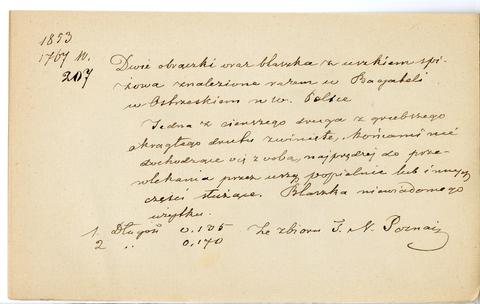 1853
1767 M.
207
Dwie obrączki oraz blaszka z uszkiem spi-
żowa znalezione razem w Bagateli
w Ostrzeskiem n w. Polsce
Jedna z cieńszego druga z grubszego
okrągłego drutu zwinięte, końcami nie
dochodzące się z sobą, najprędzej do prze-
wlekania przez uszy popielnic lub innych
części służące. Blaszka niewiadomego
użytku.
1 Długość 0.185 Ze zbioru T. N. Poznań
2 „ 0.170